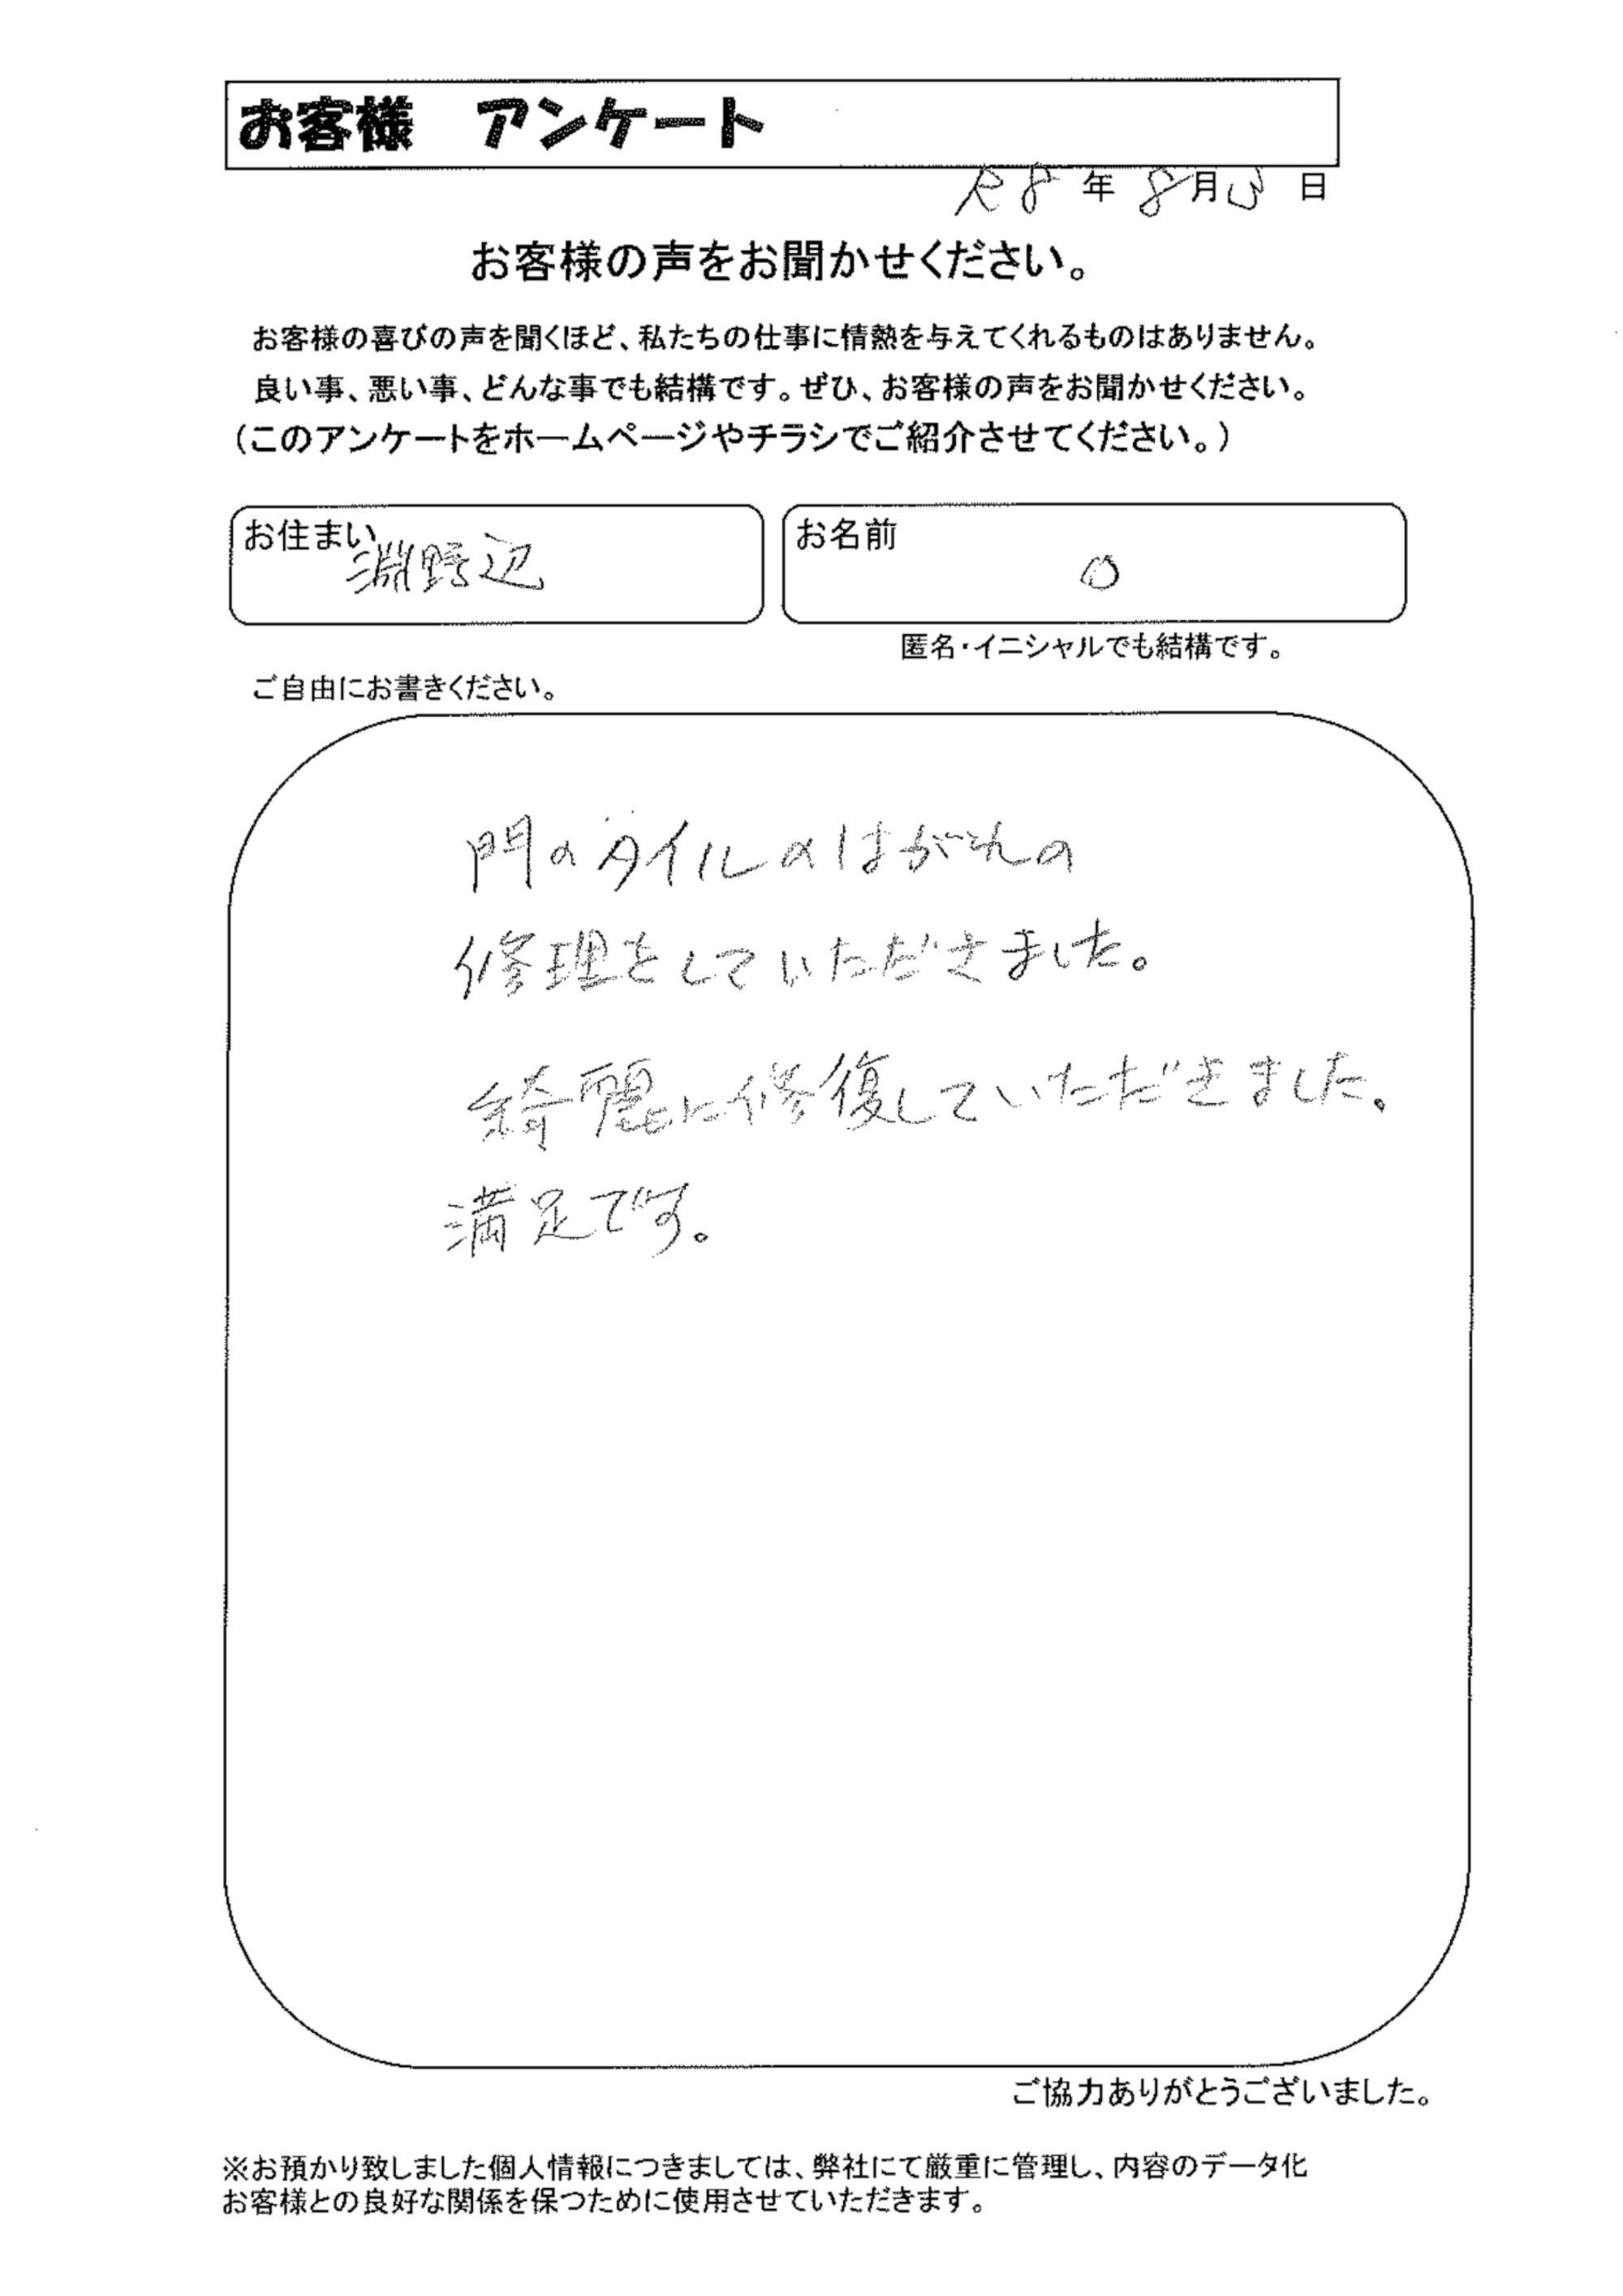 お客様　アンケート
R8年8月3日
お客様の声をお聞かせください。
お客様の喜びの声を聞くほど、私たちの仕事に情熱を与えてくれるものはありません。
良い事、悪い事、どんな事でも結構です。ぜひ、お客様の声をお聞かせください。
（このアンケートをホームページやチラシでご紹介させてください。）
お住まい
淵野辺
お名前
O
匿名・イニシャルでも結構です。
ご自由にお書きください。
門のタイルのはがれの
修理をしていただきました。
綺麗に修復していただきました。
満足です。
ご協力ありがとうございました。
※お預かり致しました個人情報につきましては、弊社にて厳重に管理し、内容のデータ化
お客様との良好な関係を保つために使用させていただきます。